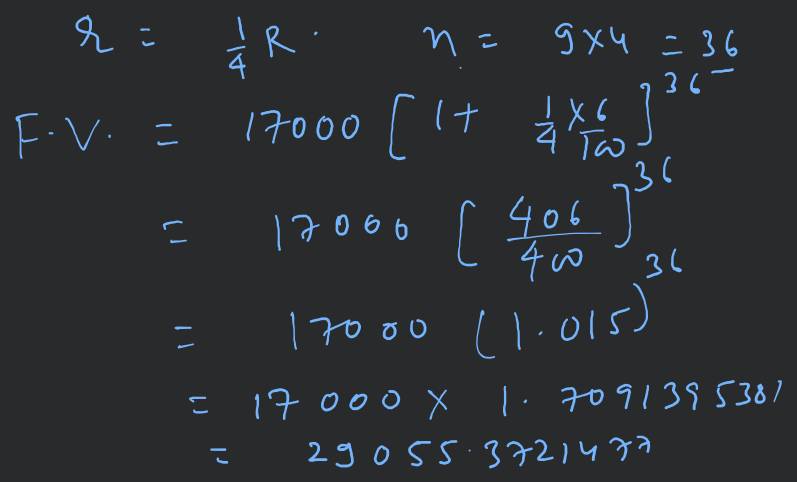 r = 1/4 R. n = 9x4 = 36
F.V. = 17000 [1+ 1/4 x 6/100]^36
= 17000 [406/400]^36
= 17000 (1.015)^36
= 17000 x 1.7091395381
= 29055.3721477